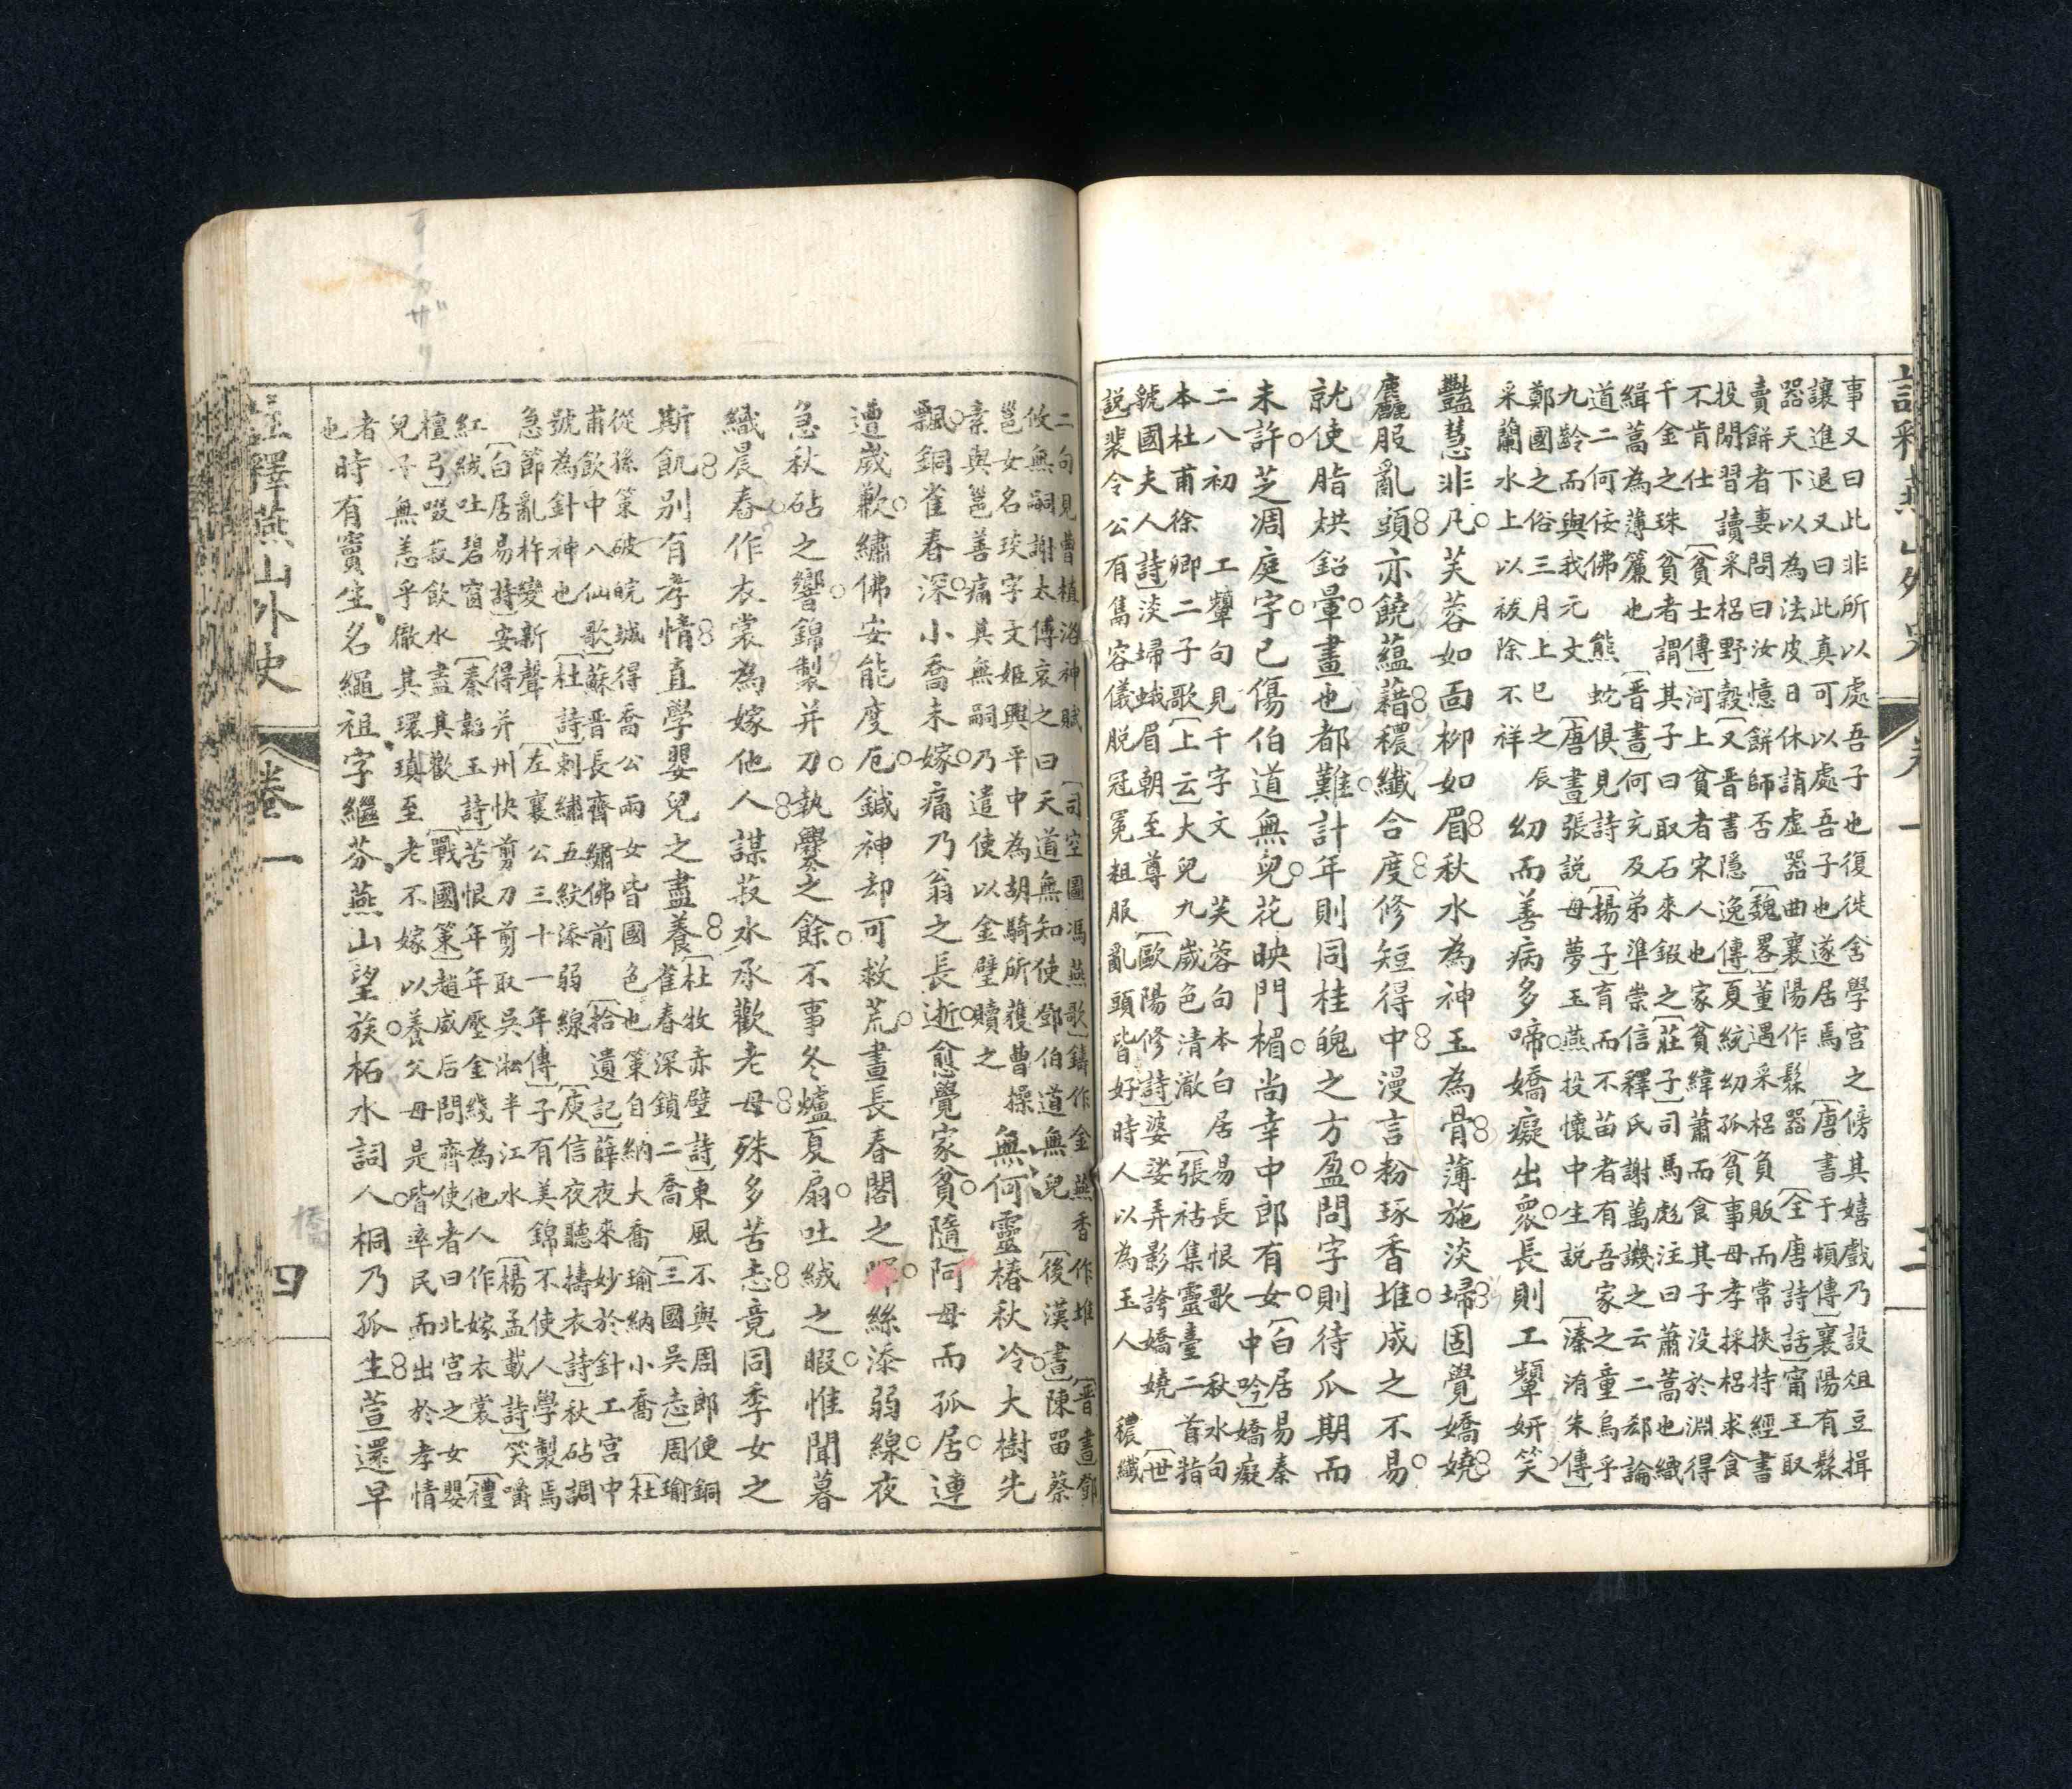 註釋燕山外史
卷一
三
事又曰此非所以處吾子也復徙舍學宮之傍其嬉戲乃設俎豆揖
讓進退又曰此真可以處吾子也遂居焉 〔唐書于頔傳〕襄陽有髹
器天下以為法皮日休誚虛器曲襄陽作髹器 〔全唐詩話〕甯王取
賣餅者妻問曰汝憶餅師否 〔魏畧〕董遇采梠負販而常挾持經書
投閒習讀采梠野穀〔又晉書隱逸傳〕夏統幼孤貧事母孝採梠求食
不肯仕 〔貧士傳〕河上貧者宋人也家貧緯蕭而食其子沒於淵得
千金之珠貧者謂其子曰取石來鍜之〔莊子〕司馬彪注曰蕭蒿也織
緝蒿為薄簾也 〔晉書〕何充及弟準崇信釋氏謝萬譏之云二郄論
道二何佞佛 熊蛇俱見詩 〔揚子〕育而不苗者有吾家之童烏乎
九齡而與我元文 〔唐書〕張説母夢玉燕投懷中生説 〔溱洧朱傳〕
鄭國之俗三月上巳之辰
采蘭水上以祓除不祥
幼而善病多啼嬌癡出衆長則工顰妍笑
豔慧非凡芙蓉如面柳如眉秋水為神玉為骨薄施淡埽固覺嬌嬈
麤服亂頭亦饒蘊藉穠纖合度修短得中漫言粉琢香堆成之不易
就使脂烘鉛暈畫也都難計年則同桂魄之方盈問字則待瓜期而
未許芝凋庭宇已傷伯道無兒花映門楣尚幸中郎有女
〔白居易秦
中吟〕嬌癡
二八初 工顰句見千字文 芙蓉句本白居易長恨歌 秋水句
本杜甫徐卿二子歌〔上云〕大兒九歲色清澈 〔張祜集靈臺二首指
號國夫人詩〕淡埽蛾眉朝至尊 〔歐陽修詩〕婆娑弄影誇嬌嬈 〔世
説裴令公有雋容儀脱冠冕粗服亂頭皆好時人以為玉人 穠纖
二句見曹植洛神賦 〔司空圖馮燕歌〕鑄作金燕香作堆 〔晉書〕鄧
攸無嗣謝太傅哀之曰天道無知使鄧伯道無兒 〔後漢書〕陳畱蔡
邕女名琰字文姬興平中為胡騎所獲曹操
素與邕善痛其無嗣乃遣使以金璧贖之
無何靈椿秋冷大樹先
飄銅雀春深小喬未嫁痛乃翁之長逝愈覺家貧隨阿母而孤居連
遭歲歉繡佛安能度厄鍼神却可救荒晝長春閣之絲添弱線夜
急秋砧之響錦製并刀執爨之餘不事冬爐夏扇吐絨之暇惟聞暮
織晨舂作衣裳為嫁他人謀菽水承歡老母殊多苦志竟同季女之
斯飢別有孝情直學嬰兒之盡養
〔杜牧赤壁詩〕東風不與周郎便銅
雀春深鎖二喬 〔三國吳志〕周瑜
從孫策破皖城得喬公兩女皆國色也策自納大喬瑜納小喬 〔杜
甫飲中八仙歌〕蘇晉長齊繡佛前 〔拾遺記〕薛夜來妙於針工宮中
號為針神也 〔杜詩〕刺繡五紋添弱線 〔庾信夜聽擣衣詩〕秋砧調
急節亂杵變新聲 〔左襄公三十一年傳〕子有美錦不使人學製焉
〔白居易詩〕安得并州快剪刀剪取吳淞半江水 〔楊孟載詩〕笑嚼
紅絨吐碧窗 〔秦韜玉詩〕苦恨年年壓金綫為他人作嫁衣裳 〔禮
檀弓〕啜菽飲水盡其歡 〔戰國策〕趙威后問齊使者曰北宮之女嬰
兒子無恙乎徹其環瑱至老不嫁以養父母是皆率民而出於孝情
者
也
時有竇生名繩祖字繼芬燕山望族柘水詞人桐乃孤生萱還早
註釋燕山外史
卷一
四
橋